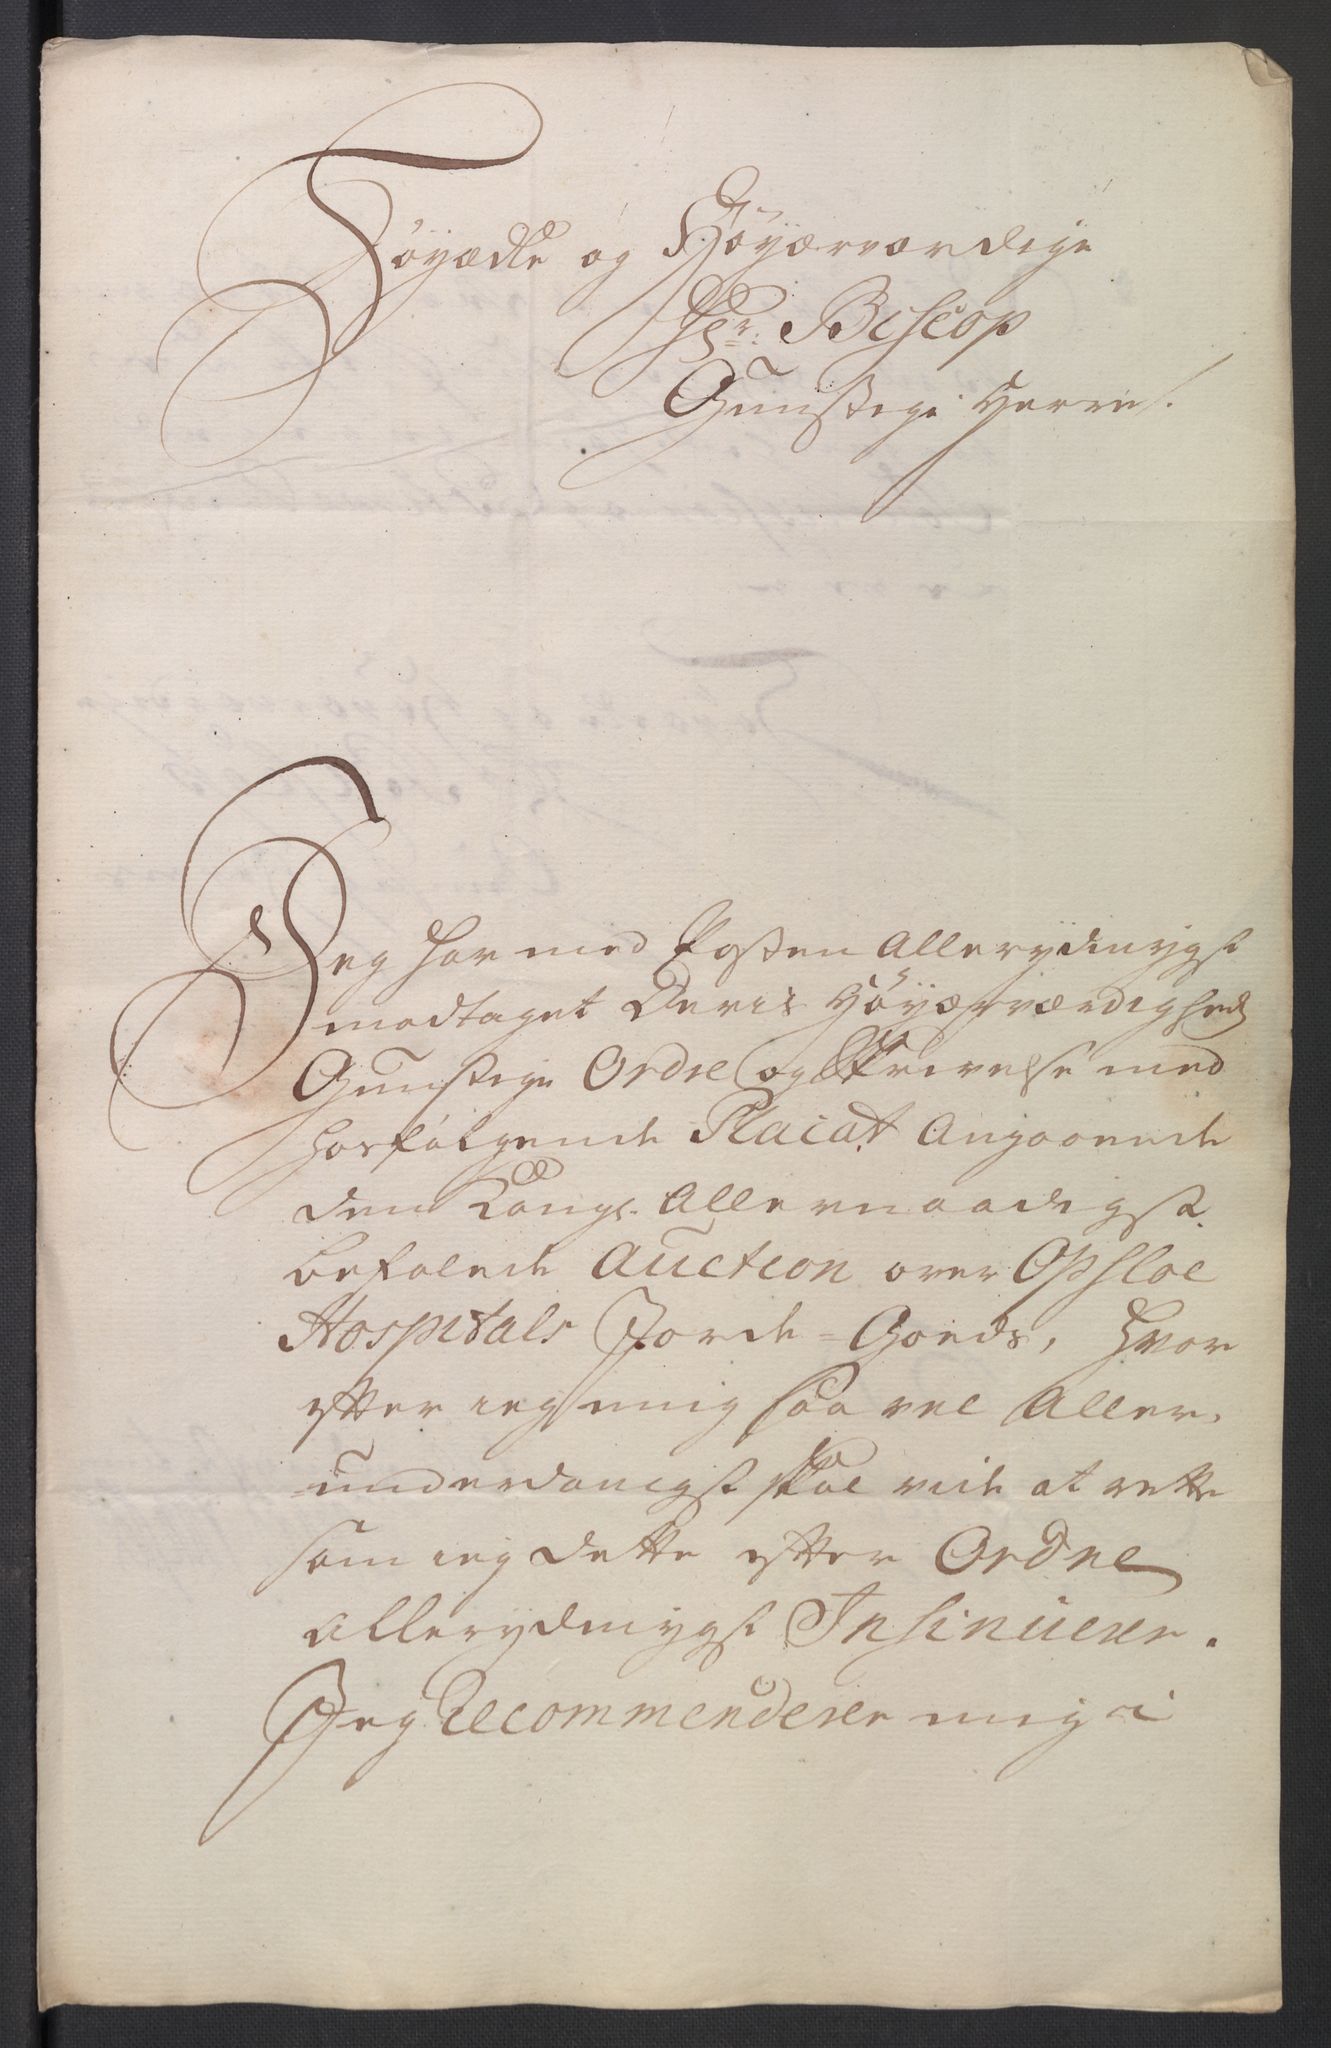 Höyædle og Höyærværdige
Hr. Biscop
Gunstige Herre!
Jeg har med Posten Allerydmygst
modtaget Deris Höyærværdighed
Gunstige Ordre og Skrivelse med
hosfølgende Placat Angaaende
den Kongl. Allernaadigst
befalede Auction over Opsloe
Hospitals Jorde-Goeds, hvor
efter ieg mig saa vel Aller-
underdanigst skal vide at rette
som ieg dette efter Ordre
allerydmygst Insinuerer.
Jeg Recommenderer mig i